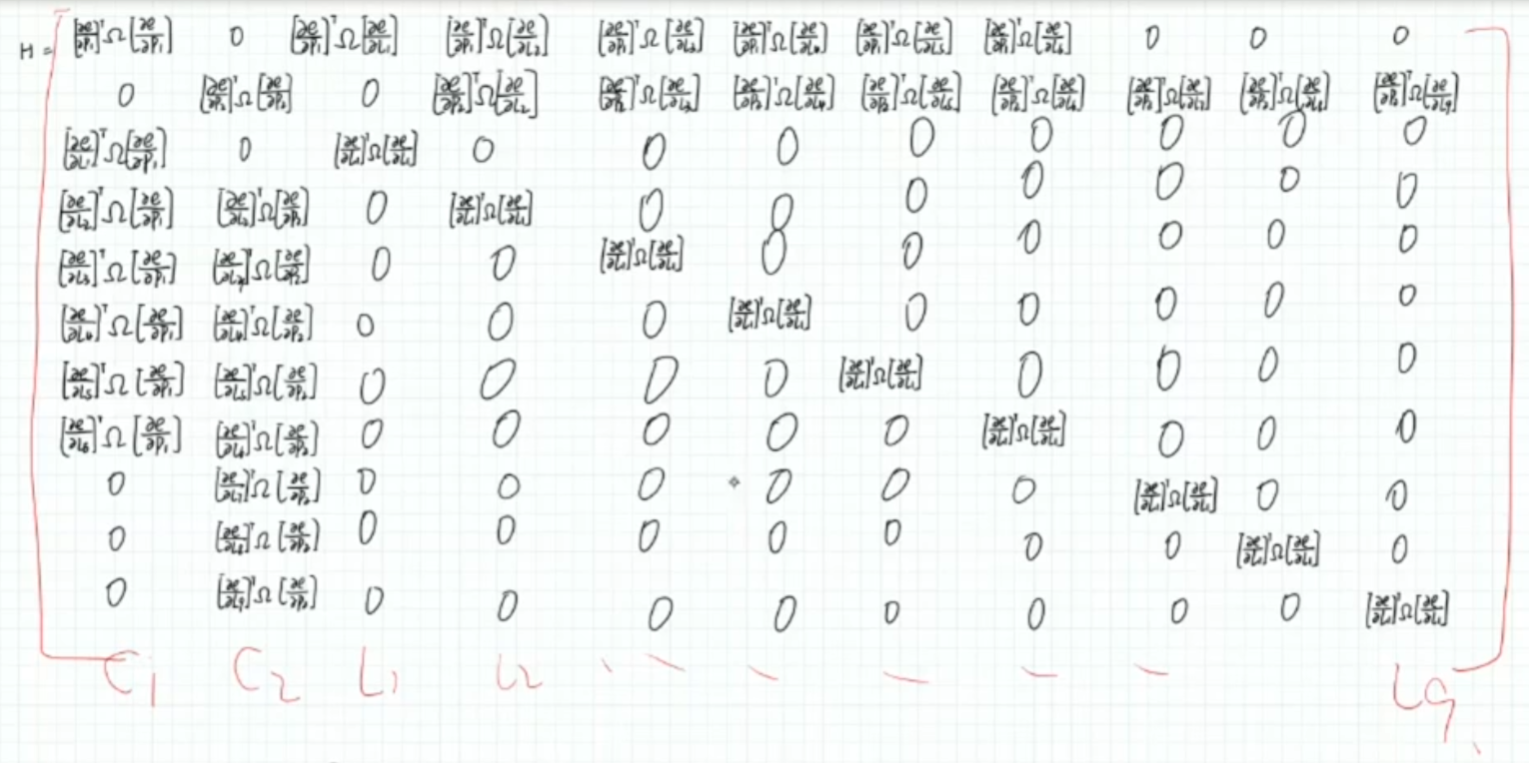 H = [∂e/∂P₁]ᵀΩ[∂e/∂P₁] 0 [∂e/∂P₁]ᵀΩ[∂e/∂L₁] [∂e/∂P₁]ᵀΩ[∂e/∂L₂] [∂e/∂P₁]ᵀΩ[∂e/∂L₃] [∂e/∂P₁]ᵀΩ[∂e/∂L₄] [∂e/∂P₁]ᵀΩ[∂e/∂L₅] [∂e/∂P₁]ᵀΩ[∂e/∂L₆] 0 0 0
0 [∂e/∂P₂]ᵀΩ[∂e/∂P₂] 0 [∂e/∂P₂]ᵀΩ[∂e/∂L₂] [∂e/∂P₂]ᵀΩ[∂e/∂L₃] [∂e/∂P₂]ᵀΩ[∂e/∂L₄] [∂e/∂P₂]ᵀΩ[∂e/∂L₅] [∂e/∂P₂]ᵀΩ[∂e/∂L₆] [∂e/∂P₂]ᵀΩ[∂e/∂L₇] [∂e/∂P₂]ᵀΩ[∂e/∂L₈] [∂e/∂P₂]ᵀΩ[∂e/∂L₉]
[∂e/∂L₁]ᵀΩ[∂e/∂P₁] 0 [∂e/∂L₁]ᵀΩ[∂e/∂L₁] 0 0 0 0 0 0 0 0
[∂e/∂L₂]ᵀΩ[∂e/∂P₁] [∂e/∂L₂]ᵀΩ[∂e/∂P₂] 0 [∂e/∂L₁]ᵀΩ[∂e/∂L₁] 0 0 0 0 0 0 0
[∂e/∂L₃]ᵀΩ[∂e/∂P₁] [∂e/∂L₃]ᵀΩ[∂e/∂P₂] 0 0 [∂e/∂L₁]ᵀΩ[∂e/∂L₁] 0 0 0 0 0 0
[∂e/∂L₄]ᵀΩ[∂e/∂P₁] [∂e/∂L₄]ᵀΩ[∂e/∂P₂] 0 0 0 [∂e/∂L₁]ᵀΩ[∂e/∂L₁] 0 0 0 0 0
[∂e/∂L₅]ᵀΩ[∂e/∂P₁] [∂e/∂L₅]ᵀΩ[∂e/∂P₂] 0 0 0 0 [∂e/∂L₁]ᵀΩ[∂e/∂L₁] 0 0 0 0
[∂e/∂L₆]ᵀΩ[∂e/∂P₁] [∂e/∂L₆]ᵀΩ[∂e/∂P₂] 0 0 0 0 0 [∂e/∂L₁]ᵀΩ[∂e/∂L₁] 0 0 0
0 [∂e/∂L₇]ᵀΩ[∂e/∂P₂] 0 0 0 0 0 0 [∂e/∂L₁]ᵀΩ[∂e/∂L₁] 0 0
0 [∂e/∂L₈]ᵀΩ[∂e/∂P₂] 0 0 0 0 0 0 0 [∂e/∂L₁]ᵀΩ[∂e/∂L₁] 0
0 [∂e/∂L₉]ᵀΩ[∂e/∂P₂] 0 0 0 0 0 0 0 0 [∂e/∂L₁]ᵀΩ[∂e/∂L₁]
C₁ C₂ L₁ L₂ L₉